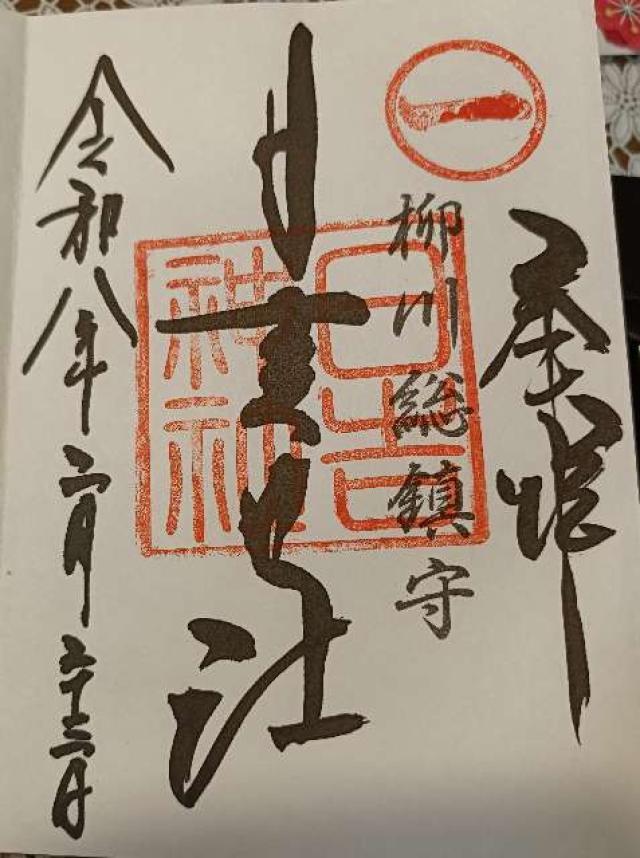 奉拝
一
柳川総鎮守
日吉神社
日吉神社
令和八年二月二十三日